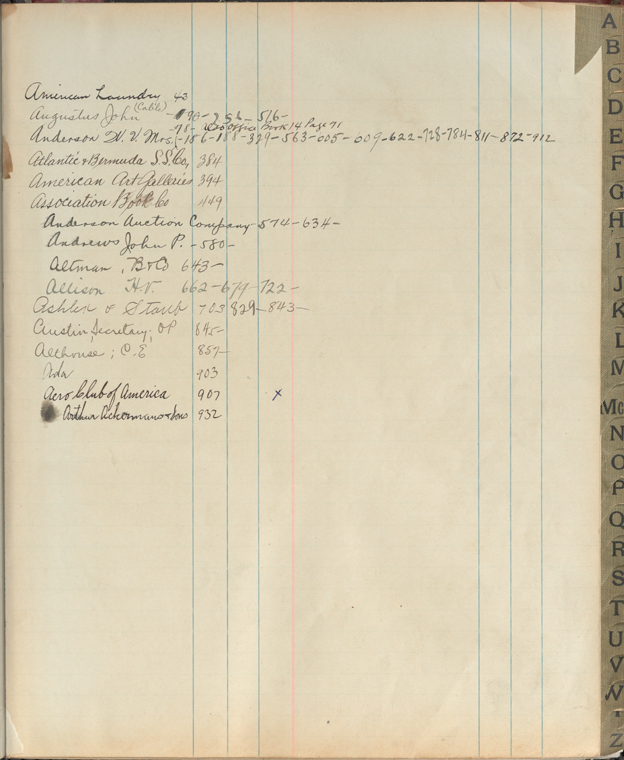 American Laundry 43
Augustus John (Cable) - 190 - 256 - 516 -
- 78 - See Office Book 14 Page 71
Anderson W. V. Mrs. - 186 - 188 - 329 - 563 - 005 - 009 - 622 - 728 - 784 - 811 - 872 - 912
Atlantic & Bermuda S.S. Co, 384
American Art Galleries 394
Association Book Co 449
Anderson Auction Company 574 - 634 -
Andrews John P. - 580 -
Altman, B & Co 643 -
Allison H.V. 662 - 679 - 722 -
Ashlen & Staub 703 829 - 843 -
Austin, Secretary, OP 845 -
Allhouse; C.E 857 -
Ada 903
Aero Club of America 907 x
Arthur Ackermann & Sons 932
A
B
C
D
E
F
G
H
I
J
K
L
M
Mc
N
O
P
Q
R
S
T
U
V
W
Y
Z